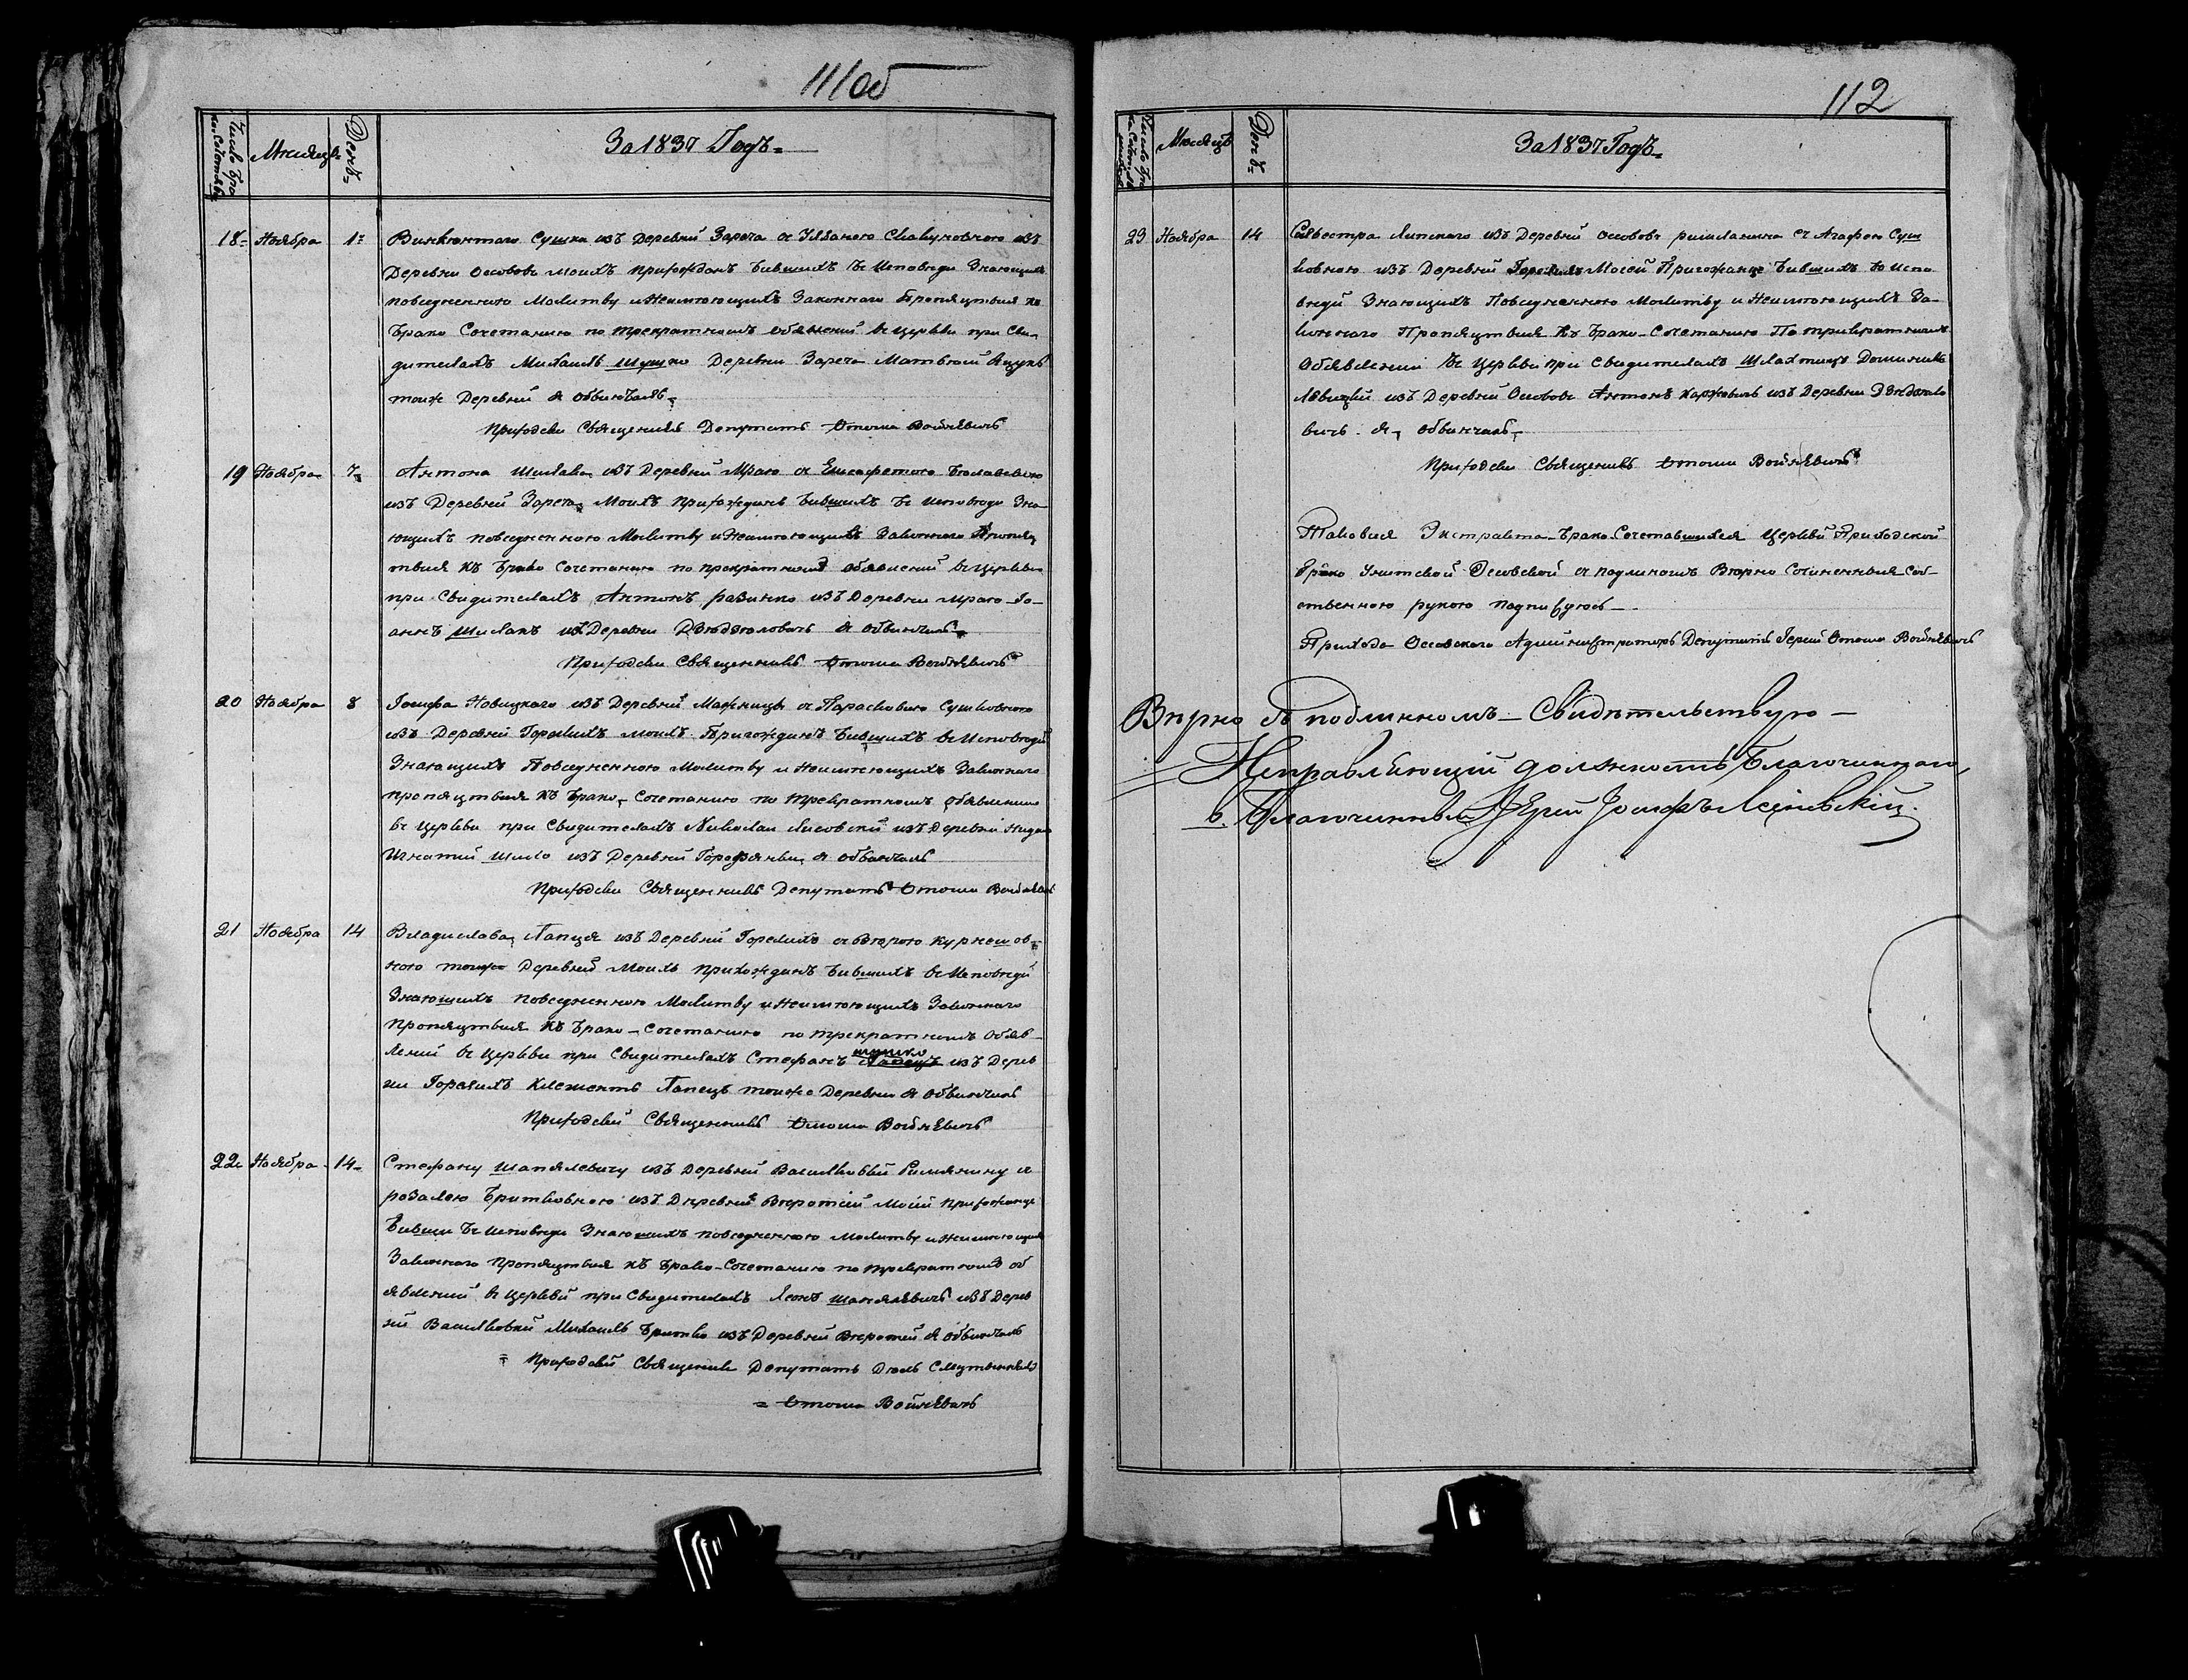 111об
Число бра
косочетавш
Мѣсяцъ
День
За 1837 Годъ
18 Ноября 1 Винкентого Сушка изъ Деревни Зареча съ Уляною Скакуновною изъ
Деревни Осововъ моихъ прихожанъ бившихъ въ исповеди Знающихъ
повседненною Молитву и Неимеющихъ Законного Препяцтвия ко
Брако Сочетанию по трекратномъ обявлений въ церкви при Сви
дителахъ Михаилъ Шушко Деревни Зареча Матьвей
тоиже Деревни Я обвинчалъ
Приходски Священникъ Депутатъ Ѳтома Войневичъ
19 Ноября 7 Антона Шилака изъ Деревни Мраго съ
изъ Деревни Зареча Моихъ прихожднъ бившихъ въ исповеди Зна
ющихъ повседненною Молитву и Неимеющихъ Законного Препяц
твия къ Брако Сочетанию по трекратномъ обявлений въ церкви
при Свидителахъ Антонъ разинко изъ Деревни Мраго Іо
аннъ Шилакъ изъ Деревни Дзюдзюловичъ Я обвинчалъ
Приходски Священникъ Ѳтома Войневичъ
20 Ноября 8 Іосифа Новицкаго изъ Деревни съ Парасковию Сушковною
изъ Деревни Горелихъ моихъ Прихождянъ бившихъ въ исповеди
Знающихъ Повседненною Молитву и Неимеющихъ Законного
препяцтвия къ Брако Сочетанию по Трекратномъ обявлении
въ Церкви при Свидителахъ Николай Лисовский изъ Деревни
Игнатий Шило изъ Деревни Я обвинчалъ
Приходски Священникъ Депутатъ Ѳтома Войневичъ
21 Ноября 14 Владислава Лапця изъ Деревни Горелихъ съ Вѣрою
ною тоиже Деревни Моихъ прихождянъ бившихъ въ исповеди
Знающихъ повседненною Молитву и Неимеющихъ Законного
Препяцтвия къ Брако-Сочетанию по трекратномъ обяв-
лений въ Церкви при Свидителахъ Стефанъ шушко изъ Дерев
ни Горелихъ Клементъ Лапецъ тоиже Деревни Я обвинчалъ
Приходский Священникъ Ѳтома Войневичъ
22 Ноября 14 Стефану Шапялевичу изъ Деревни Василковки Римянину съ
розалею Бритковною изъ Деревни Веротей Моей Прихожанце
бивши въ исповеди Знающихъ повседненною Молитву и Неимеющихъ
Законного препяцтвия къ Брако-Сочетанию по трекратномъ об
явлений въ Церкви при Свидителахъ Леонъ Шапялевичъ изъ Дерев
ни Василковки Михаилъ Бритко изъ Деревни Веротей Я обвинчалъ
Приходский Священникъ Депутатъ
Ѳтома Войневичъ
112
Число бра
косочетав
шихся
Мѣсяцъ
День
За 1837 Годъ
23 Ноября 14 Силвестра Липского изъ Деревни Осововъ римлянина съ Агафею Суш
ковною изъ Деревни Горелихъ Моей Прихожанце бившихъ въ испо
веди Знающихъ Повседненною Молитву и Неимеющихъ За-
конного Препяцтвия къ Брако-Сочетанию По трикратномъ
Обявлении въ Церкви при Свидителахъ Шляхтицъ Доминикъ
Левицкий изъ Деревни Осововъ Антонъ Каржевичъ изъ Деревни Дзюдзюло
вичъ Я обвинчалъ
Приходски Священникъ Ѳтома Войневичъ
Таковия Экстракта Брако Сочетавшихся Церкви Приходской
Греко Унитской Осовской съ подлиномъ Вѣрно Сочиненныя соб-
ственною рукою подписуюсь
Прихода Осовского Администраторъ Депутатъ Іерей Ѳтома Войневичъ
Вѣрно съ подлиннымъ Свидѣтельствую
Исправляющій должность Благочиннаго
в. Благочинный Іерей Іосифъ